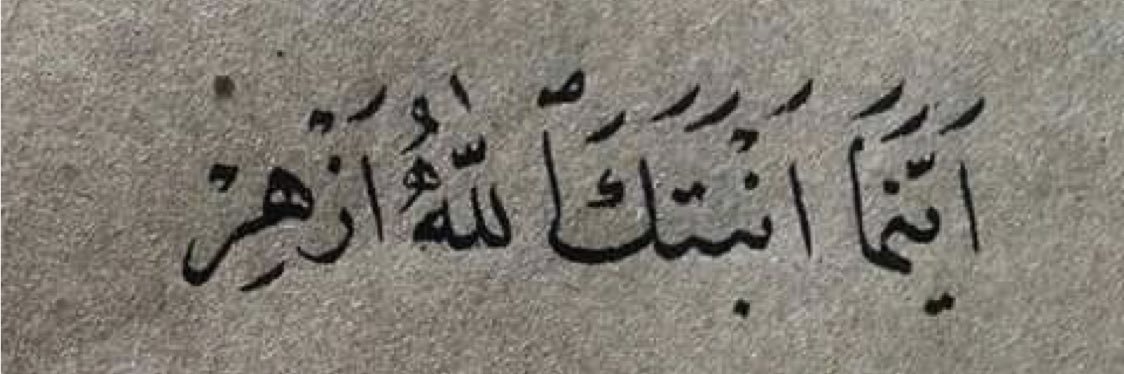 اَيّنَمَا اَنْبَتَكَ ٱللّٰهُ اَزْهِرْ